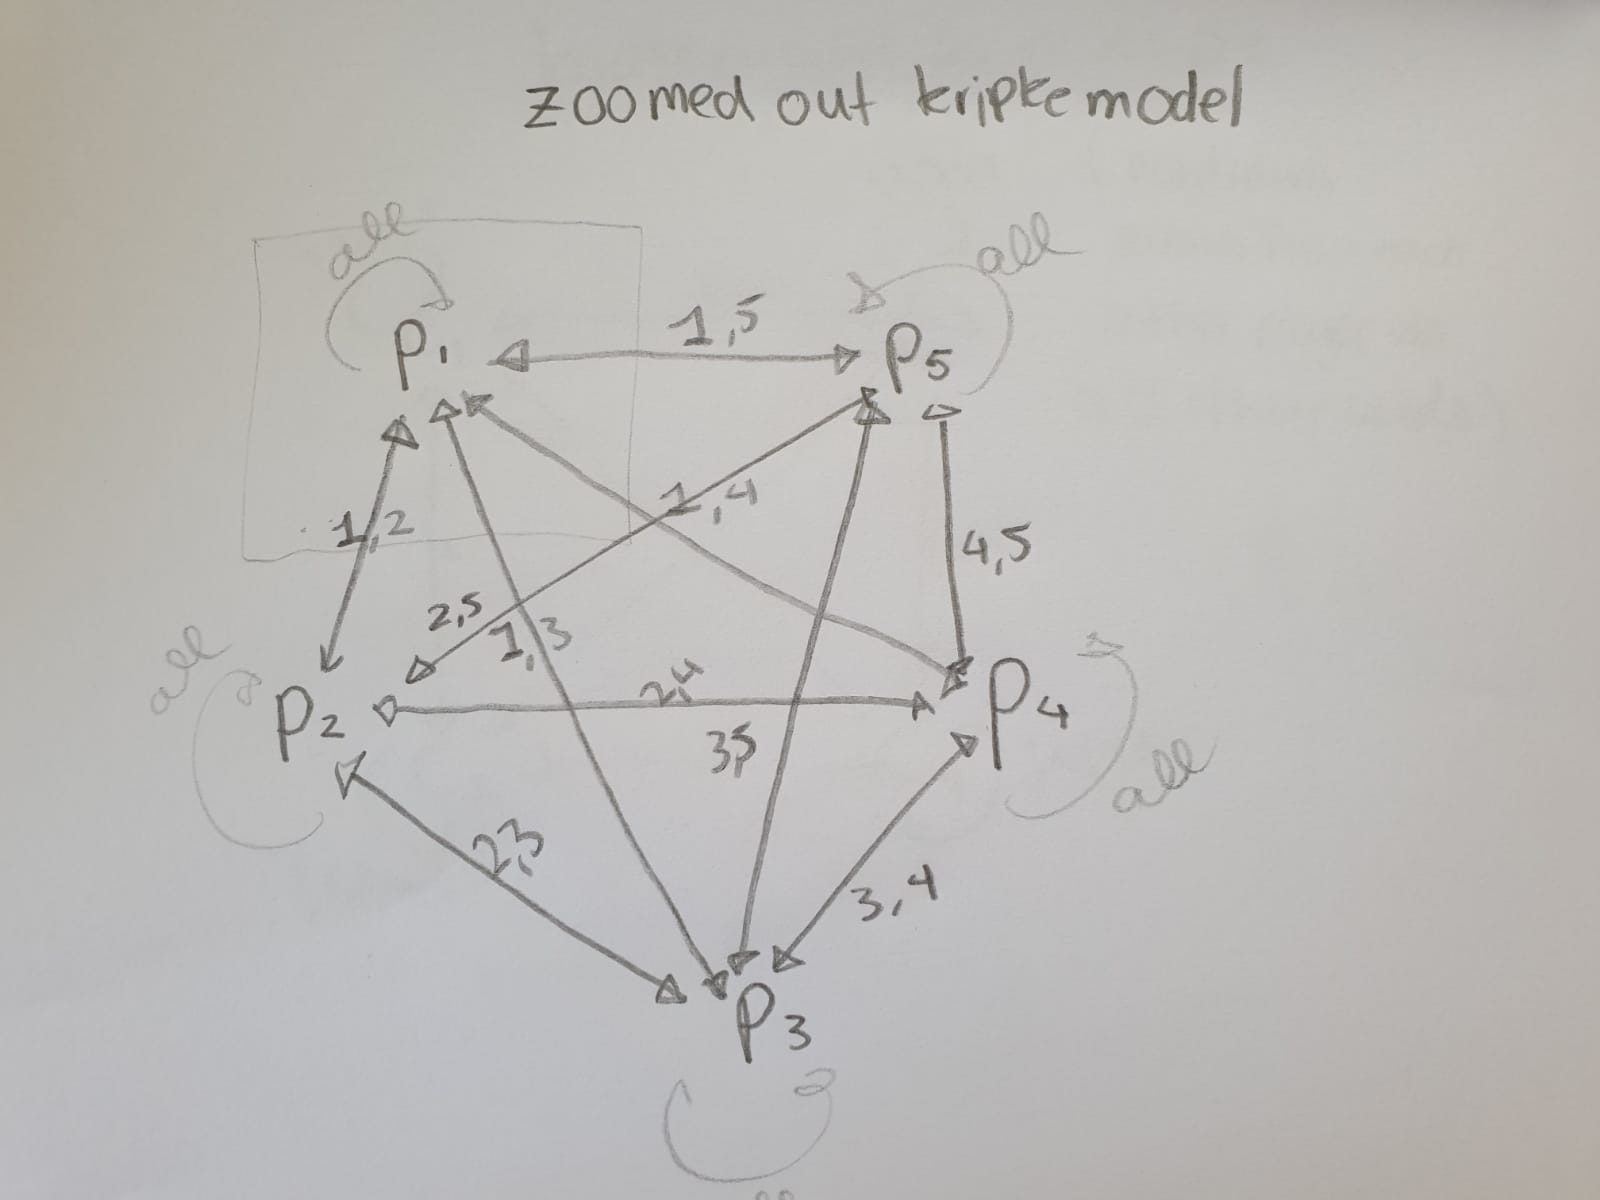 zoomed out kripke model
all
all
P1
1,5
P5
1,4
1,2
4,5
2,5
1,3
all
2,4
P2
P4
3,5
all
2,3
3,4
P3